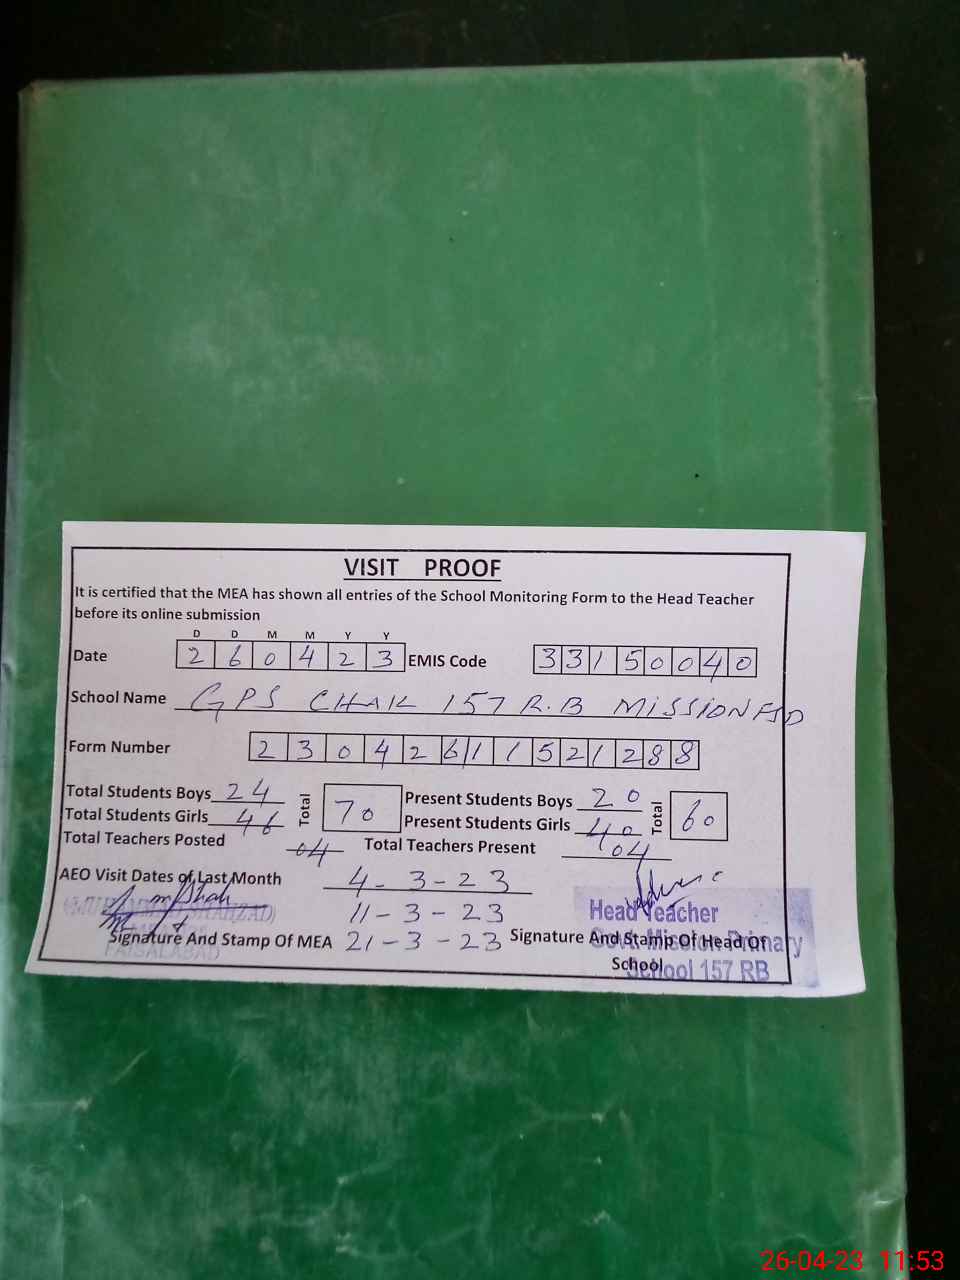 VISIT PROOF
It is certified that the MEA has shown all entries of the School Monitoring Form to the Head Teacher
before its online submission
D D M M Y Y
Date 2 6 0 4 2 3 EMIS Code 3 3 1 5 0 0 4 0
School Name GPS CHAK 157 R.B MISSION FSD
Form Number 2 3 0 4 2 6 1 1 5 2 1 2 8 8
Total Students Boys 24 Total 70 Present Students Boys 20 Total 60
Total Students Girls 46 Present Students Girls 40
Total Teachers Posted 04 Total Teachers Present 04
AEO Visit Dates of Last Month 4-3-23
(MUHAMMAD SHAHZAD) 11-3-23 Head Teacher
Signature And Stamp Of MEA 21-3-23 Signature And Stamp Of Head Of
School
FAISALABAD
Govt. Mission Primary
School 157 RB
26-04-23 11:53